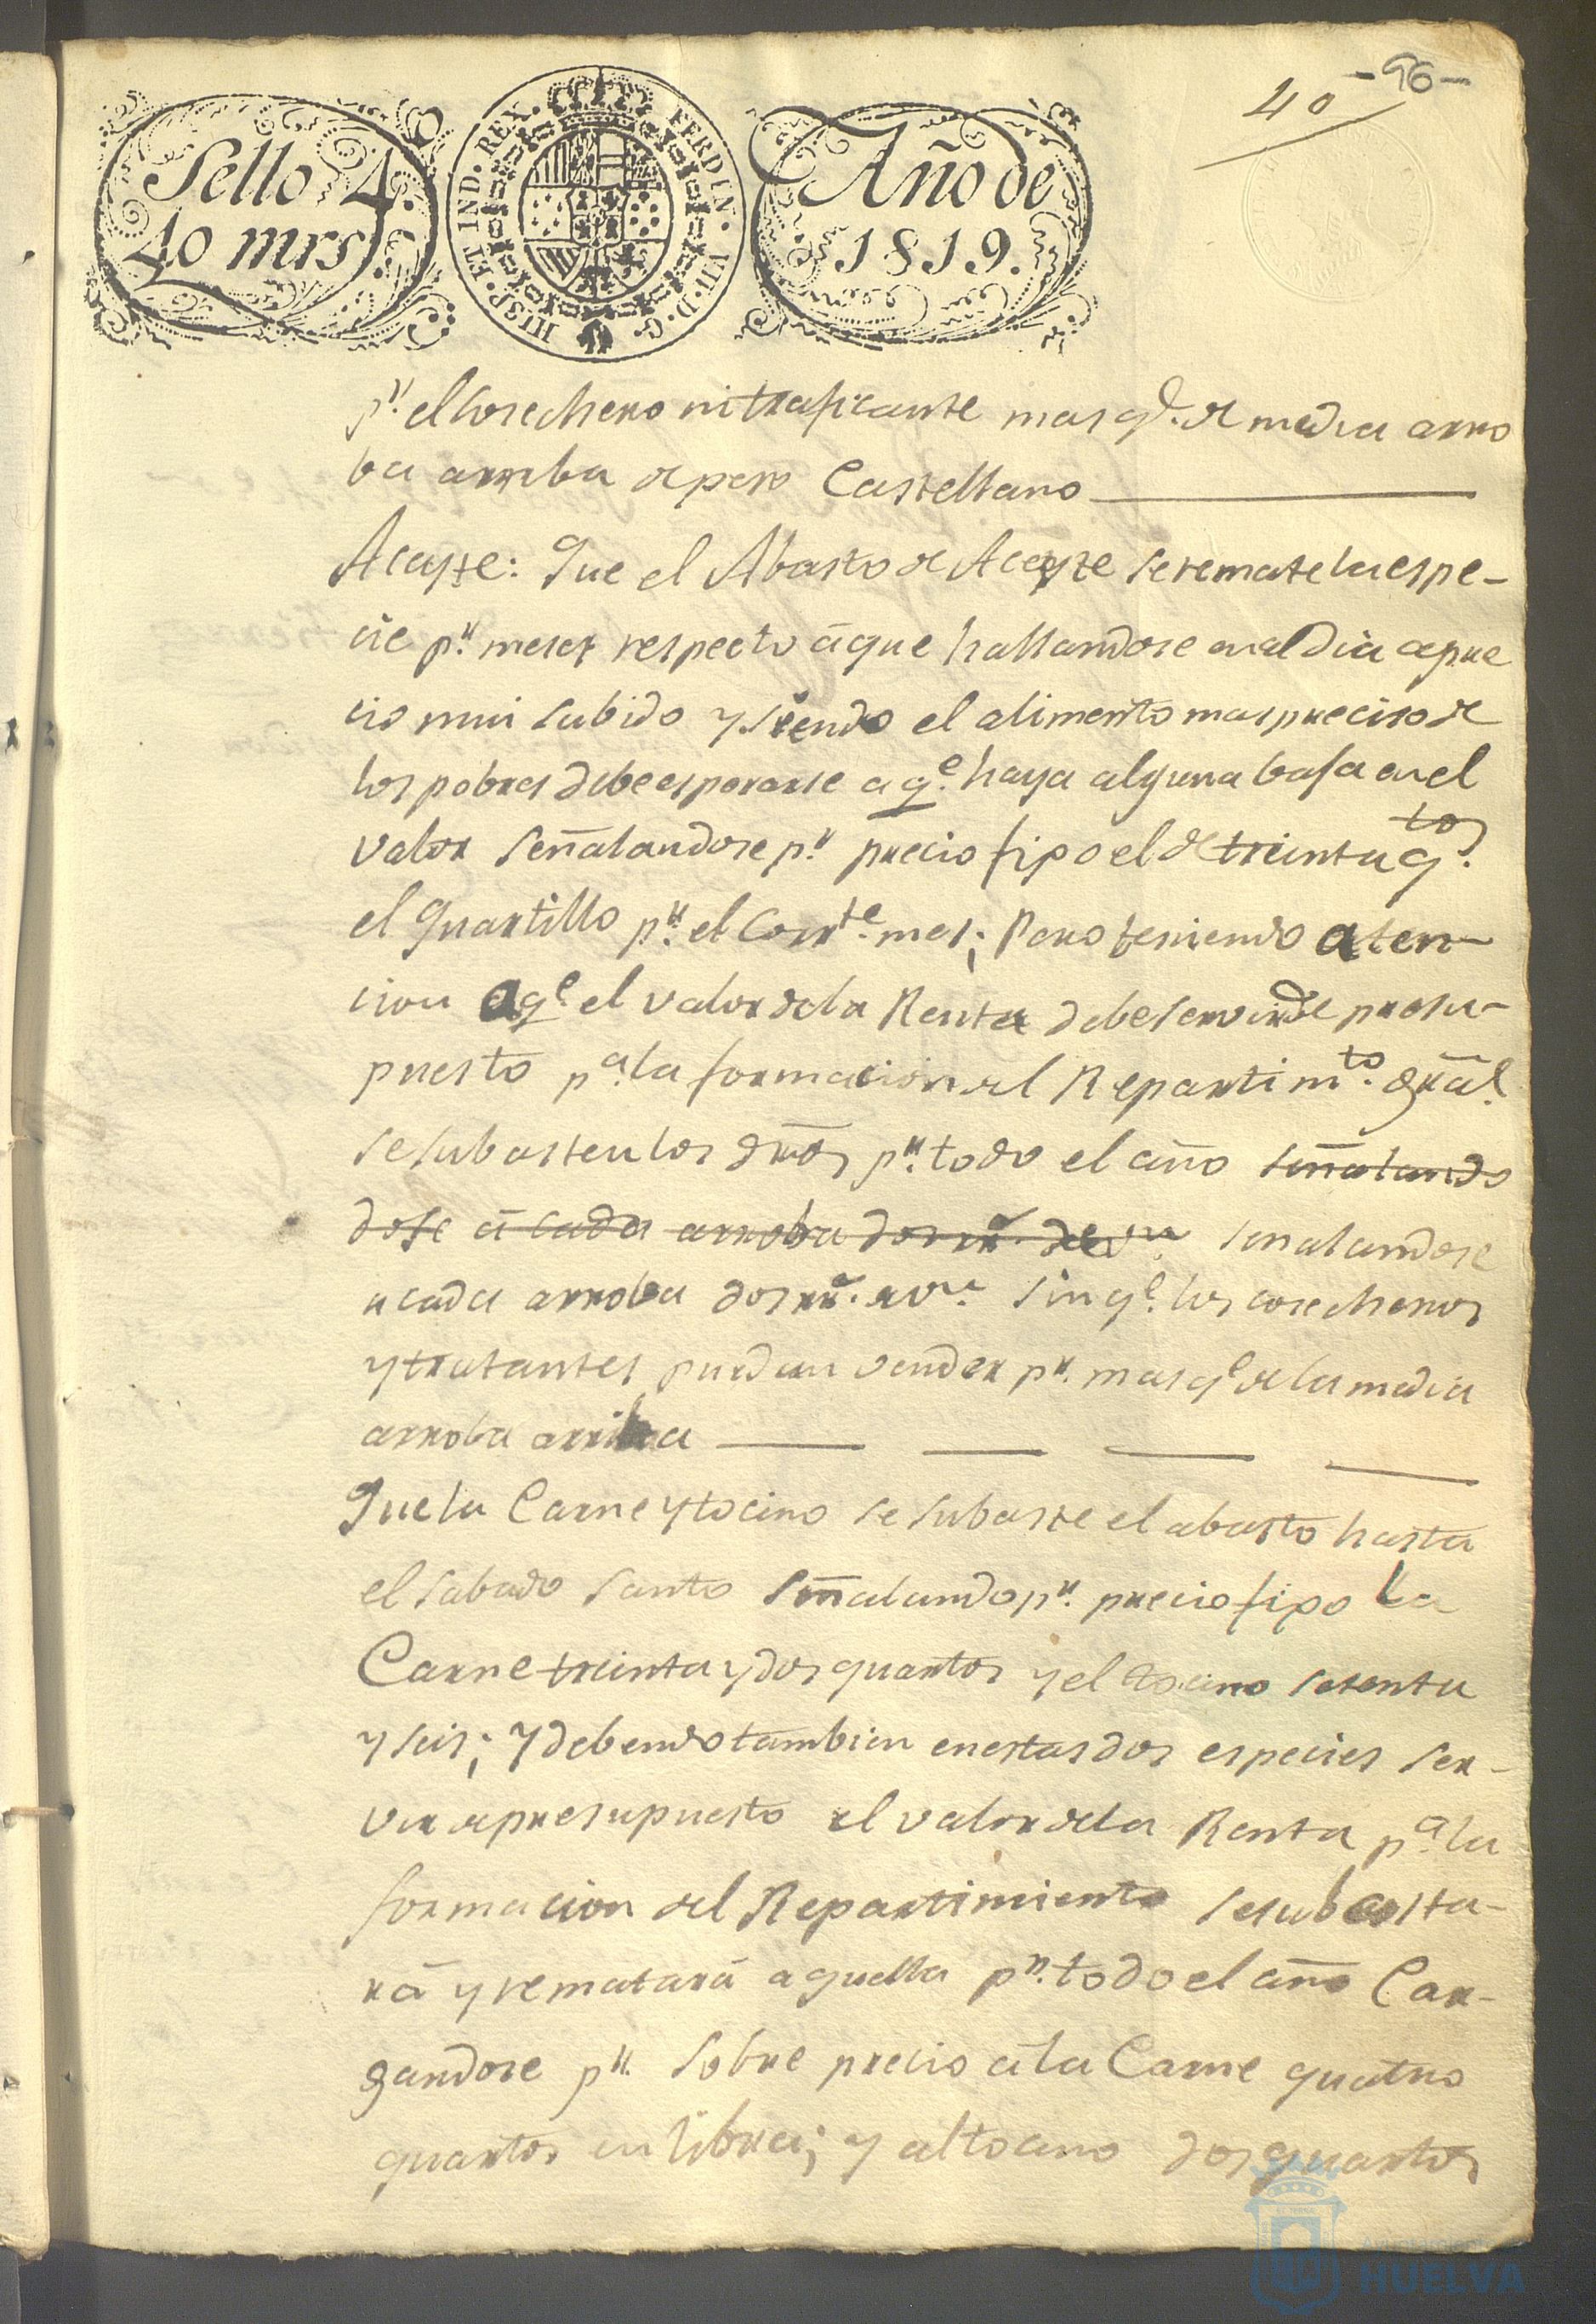 -96-
40
Sello 4.º
40 mrs.
HISP. ET IND. REX. FERDIN. VII. D. G.
Año de
1819.
pr. el cosechero ni traficante mas qe. de media arro
ba arriba de peso Castellano
Aceyte: Que el Abasto de Aceyte se remate la espe-
cie pr. meses respecto á que hallandose en el dia a pre
cio mui subido y siendo el alimento mas preciso de
los pobres debe esperarse a qe. haya alguna baja en el
valor señalandose pr. precio fijo el de treinta qtos.
el quartillo pr. el Corrte. mes; Pero teniendo aten-
cion a qe el valor de la Renta debe servir de presu-
puesto pa. la formacion del Repartimto. Gral.
se subasten los dros pr. todo el año señalando
dose á cada arroba dos rr. de vn señalandose
a cada arroba dos rr. de vn. sin qe. los cosecheros
y tratantes puedan vender pr. mas qe de la media
arroba arriba
Que la Carne y tocino se subaste el abasto hasta
el sabado santo señalando pr. precio fijo la
Carne treinta y dos quartos y el tocino setenta
y seis; Y debendo tambien en estas dos especies ser-
vir de presupuesto el valor de la Renta pa. la
formacion del Repartimiento se subasta-
rá y rematará aquella pr. todo el año Car-
gandose pr. sobre precio á la Carne quatro
quartos en libra; y al tocino dos quartos
HUELVA